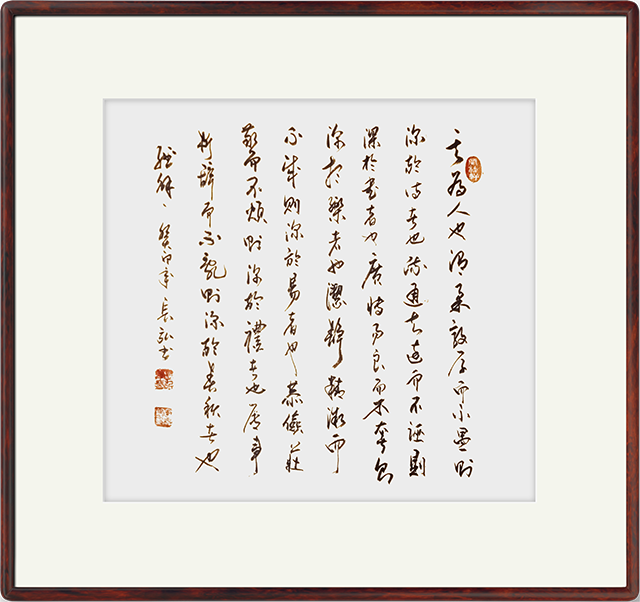 其為人也溫柔敦厚而不愚則
深於詩者也疏通知遠而不誣則
深於書者也廣博易良而不奢則
深於樂者也潔靜精微而
不賊則深於易者也恭儉莊
敬而不煩則深於禮者也屬事
辭而不亂則深於春秋者也
經解 癸卯年長 書